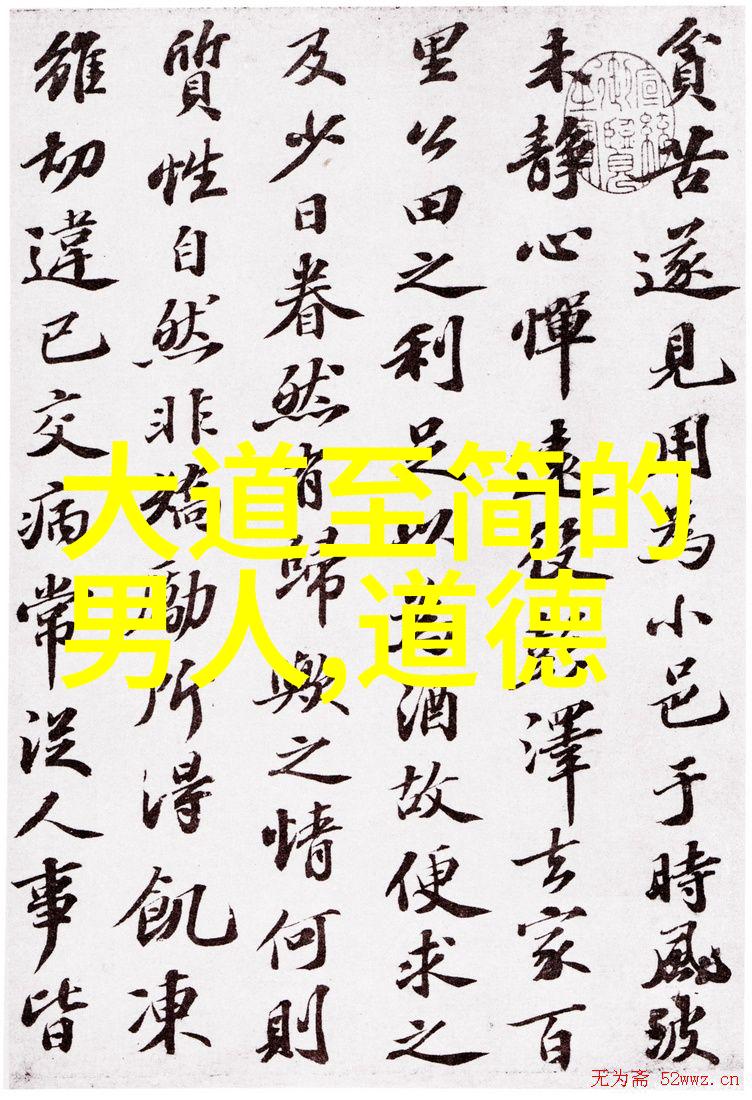 貧苦遂見用為小邑于時風波
未靜心憚遠役彭澤去家百
里公田之利足以為酒故便求之
及少日眷然有歸歟之情何則
質性自然非矯勵所得飢凍
雖切違己交病常從人事皆
宣統
御覽
之寶
大道至简的
男人,道德
无为斋 52wwz.cn